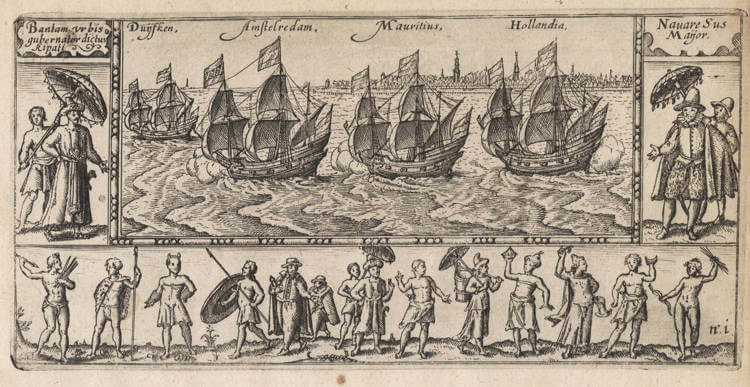 Bantam urbis
gubernator dictus
Kipati
Duyfken,
Amstelredam,
Mauritius,
Hollandia,
Navare Sus
Maijor.
nº. i